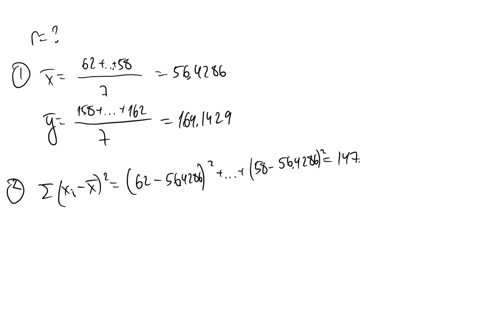 r=?
① x̄ = (62+...+58)/7 = 56,4286
ȳ = (158+...+162)/7 = 164.1429
② Σ(xᵢ-x̄)² = (62-56,4286)² +...+ (58-56,4286)² = 147.